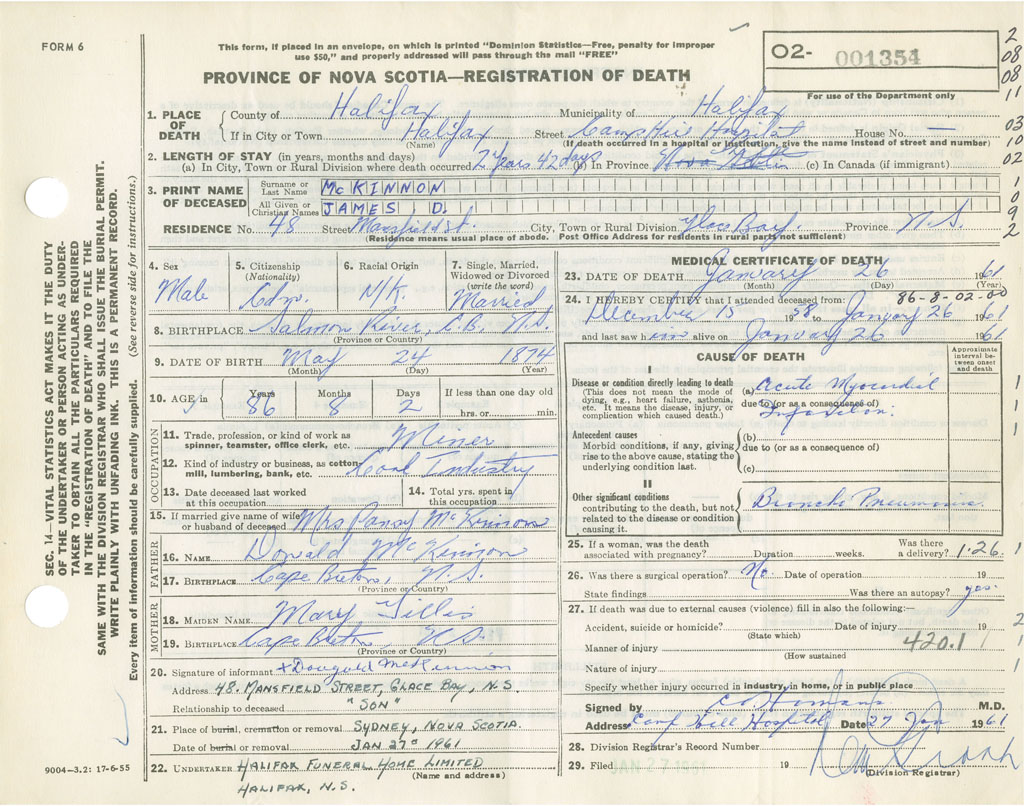 FORM 6
This form, if placed in an envelope, on which is printed "Dominion Statistics—Free, penalty for improper
use $50," and properly addressed will pass through the mail "FREE"
PROVINCE OF NOVA SCOTIA—REGISTRATION OF DEATH
O2- 001354
For use of the Department only
2
08
08
11
03
10
02
1
0
9
2
SEC. 14—VITAL STATISTICS ACT MAKES IT THE DUTY
OF THE UNDERTAKER OR PERSON ACTING AS UNDER-
TAKER TO OBTAIN ALL THE PARTICULARS REQUIRED
IN THE "REGISTRATION OF DEATH" AND TO FILE THE
SAME WITH THE DIVISION REGISTRAR WHO SHALL ISSUE THE BURIAL PERMIT.
WRITE PLAINLY WITH UNFADING INK. THIS IS A PERMANENT RECORD.
Every item of information should be carefully supplied. (See reverse side for instructions.)
1. PLACE OF DEATH
County of Halifax Municipality of Halifax
If in City or Town Halifax Street Camp Hill Hospital House No. —
(Name) (If death occurred in a hospital or institution, give the name instead of street and number)
2. LENGTH OF STAY (in years, months and days)
(a) In City, Town or Rural Division where death occurred 2 Years 42 days (b) In Province Nova Scotia (c) In Canada (if immigrant)
3. PRINT NAME OF DECEASED
Surname or Last Name McKINNON
All Given or Christian Names JAMES. D.
RESIDENCE No. 48 Street Mansfield St. City, Town or Rural Division Glace Bay, Province N.S.
(Residence means usual place of abode. Post Office Address for residents in rural parts not sufficient)
4. Sex Male
5. Citizenship (Nationality) Cdn.
6. Racial Origin N/K.
7. Single, Married, Widowed or Divorced (write the word) Married
8. BIRTHPLACE Salmon River, C.B. N.S.
(Province or Country)
9. DATE OF BIRTH May 24 1874
(Month) (Day) (Year)
10. AGE in Years 86 Months 8 Days 2 If less than one day old hrs. or min.
OCCUPATION
11. Trade, profession, or kind of work as spinner, teamster, office clerk, etc. Miner
12. Kind of industry or business, as cotton mill, lumbering, bank, etc. Coal Industry
13. Date deceased last worked at this occupation
14. Total yrs. spent in this occupation
15. If married give name of wife or husband of deceased Mrs Pansy McKinnon
FATHER
16. NAME Donald McKinnon
17. BIRTHPLACE Cape Breton, N.S.
(Province or Country)
MOTHER
18. MAIDEN NAME Mary Gillis
19. BIRTHPLACE Cape Breton N.S.
(Province or Country)
20. Signature of informant x Dougald McKinnon
Address 48. MANSFIELD STREET, GLACE BAY, N.S.
Relationship to deceased "SON"
21. Place of burial, cremation or removal SYDNEY, NOVA SCOTIA.
Date of burial or removal JAN 27th 1961
22. UNDERTAKER HALIFAX FUNERAL HOME LIMITED
(Name and address)
HALIFAX, N.S.
9004—3.2: 17-6-55
MEDICAL CERTIFICATE OF DEATH
23. DATE OF DEATH January 26 1961
(Month) (Day) (Year)
86-8-02-00
24. I HEREBY CERTIFY that I attended deceased from:
December 15 1958 to January 26 1961
and last saw him alive on January 26 1961
CAUSE OF DEATH
Approximate interval between onset and death
I
Disease or condition directly leading to death
(This does not mean the mode of dying, e.g., heart failure, asthenia, etc. It means the disease, injury, or complication which caused death.)
(a) Acute Myocardial
due to (or as a consequence of)
Infarction.
Antecedent causes
Morbid conditions, if any, giving rise to the above cause, stating the underlying condition last.
(b)
due to (or as a consequence of)
(c)
II
Other significant conditions
contributing to the death, but not related to the disease or condition causing it.
Broncho Pneumonia.
25. If a woman, was the death associated with pregnancy? Duration weeks. Was there a delivery? 1.26.
26. Was there a surgical operation? No Date of operation 19
State findings Was there an autopsy? yes
27. If death was due to external causes (violence) fill in also the following:—
Accident, suicide or homicide? Date of injury 19
(State which)
Manner of injury 420.1
(How sustained
Nature of injury
Specify whether injury occurred in industry, in home, or in public place
Signed by Homans M.D.
Address Camp Hill Hospital Date 27 Jan 1961
28. Division Registrar's Record Number
29. Filed JAN 27 1961 19
(Division Registrar)